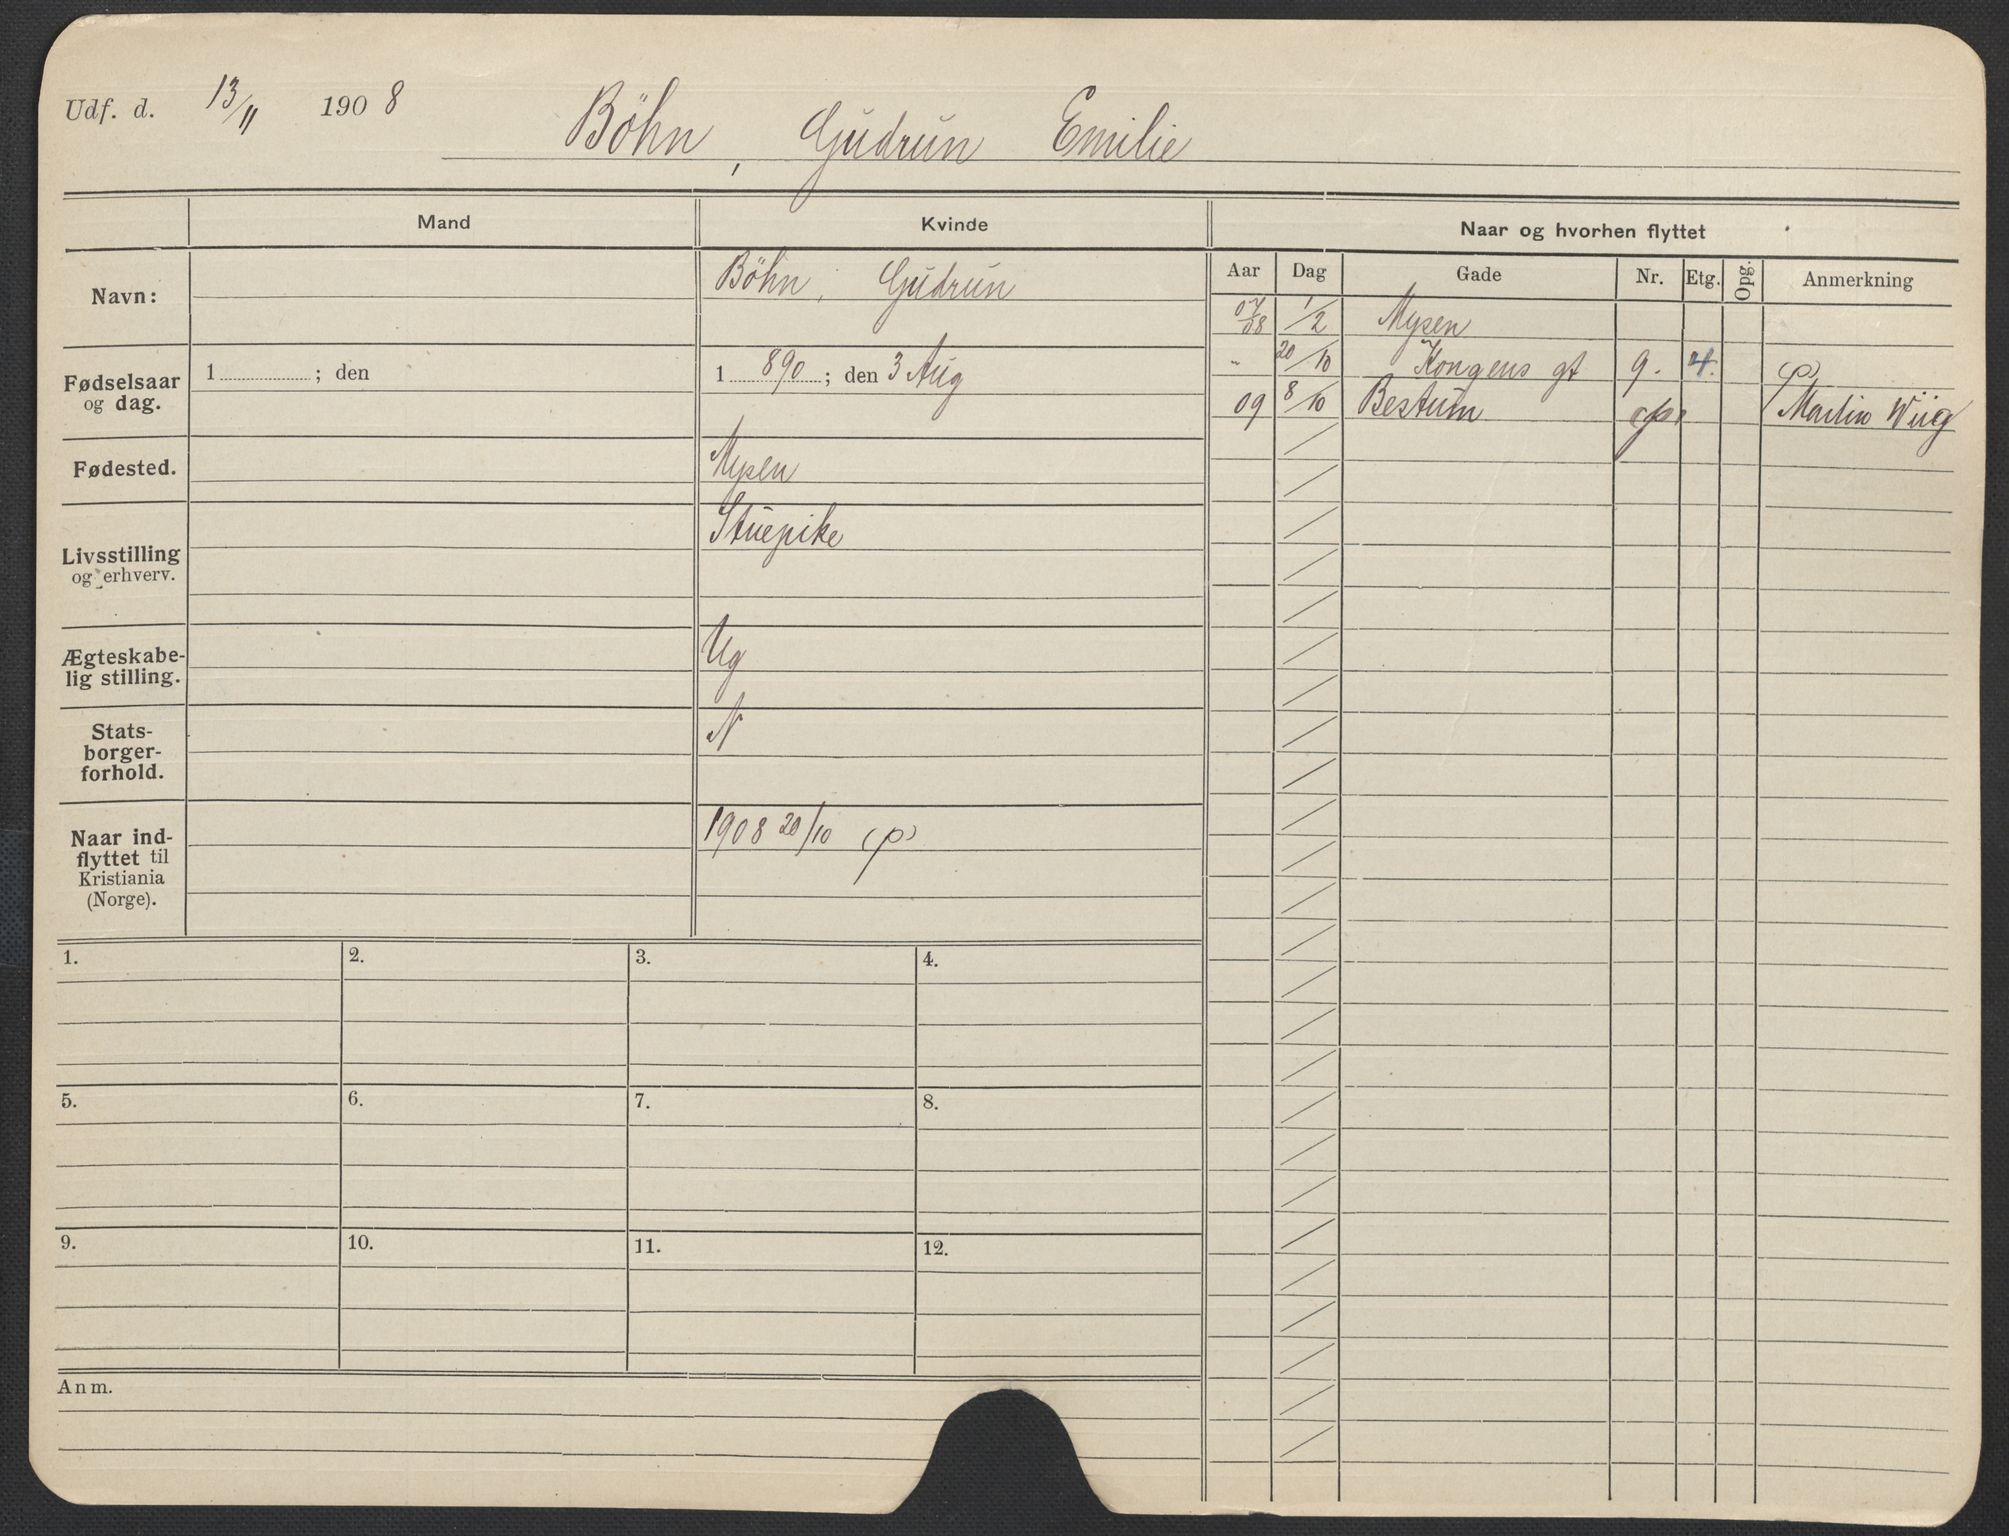 Udf. d. 13/11 1908 Böhn, Gudrun Emilie
Mand
Kvinde
Naar og hvorhen flyttet
Aar Dag Gade Nr. Etg. Opg. Anmerkning
Navn:
Böhn, Gudrun
07/08 1/2 Mysen
Fødselsaar
og dag.
1 ; den
1890; den 3 Aug
" 20/10 Kongens gt 9. 4. (p)
09 8/10 Bestum (p) Martin Wiig
Fødested.
Mysen
Livsstilling
og erhverv.
Stuepike
Ægteskabe-
lig stilling.
Ug
Stats-
borger-
forhold.
N
Naar ind-
flyttet til
Kristiania
(Norge).
1908 20/10 (p)
1. 2. 3. 4.
5. 6. 7. 8.
9. 10. 11. 12.
Anm.